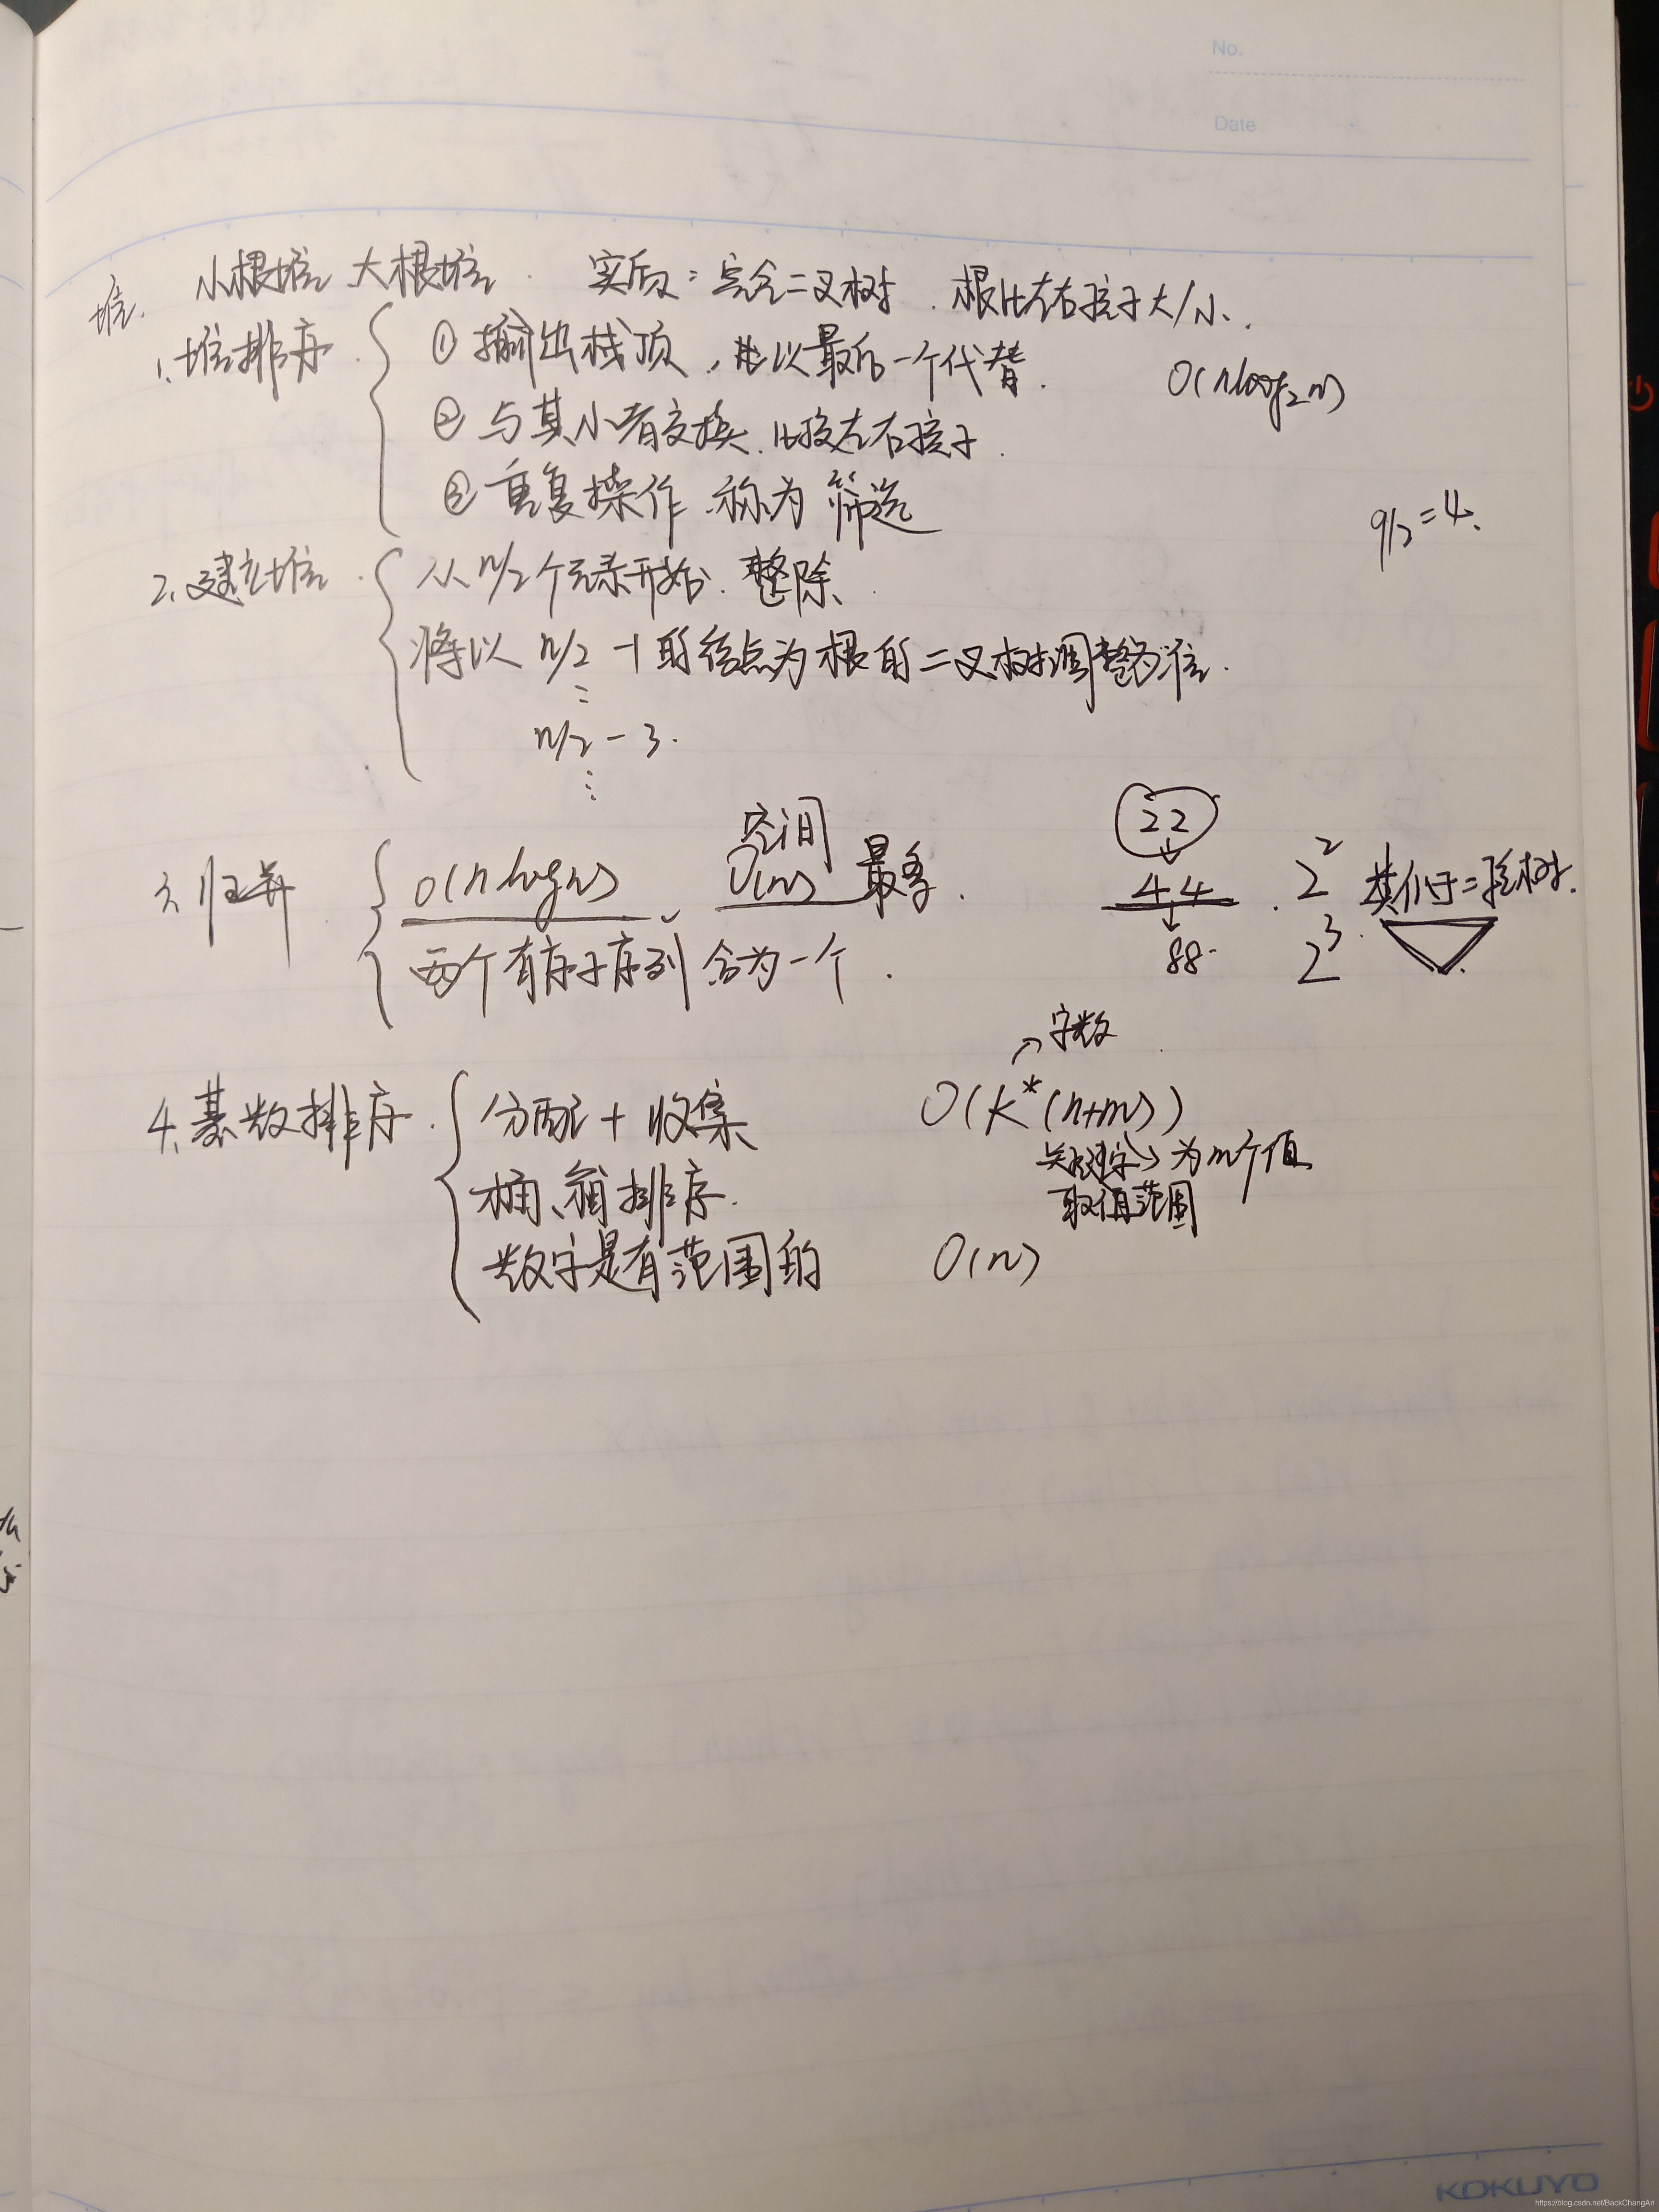 No.
Date
堆. 小根堆 大根堆. 实质:完全二叉树. 根比左右孩子大/小.
1. 堆排序. ① 输出栈顶,并以最后一个代替. O(nlog₂n)
② 与其小者交换.比较左右孩子.
③ 重复操作.称为 筛选
9/2=4.
2. 建立堆. 从n/2个元素开始.整除.
将以 n/2 -1的结点为根的二叉树调整为堆.
⋮
n/2 - 3.
⋮
3. 归并 O(nlogn)、空间O(n) 最多.
两个有序子序列合为一个.
22
↓
44 . 2² 类似于二叉树.
↓
88. 2³.
4. 基数排序. 分配+收集 O(K*(n+m))
→字数
关键字→为m个值
取值范围
桶、箱排序.
数字是有范围的 O(n)
KOKUYO
https://blog.csdn.net/BackChangAn